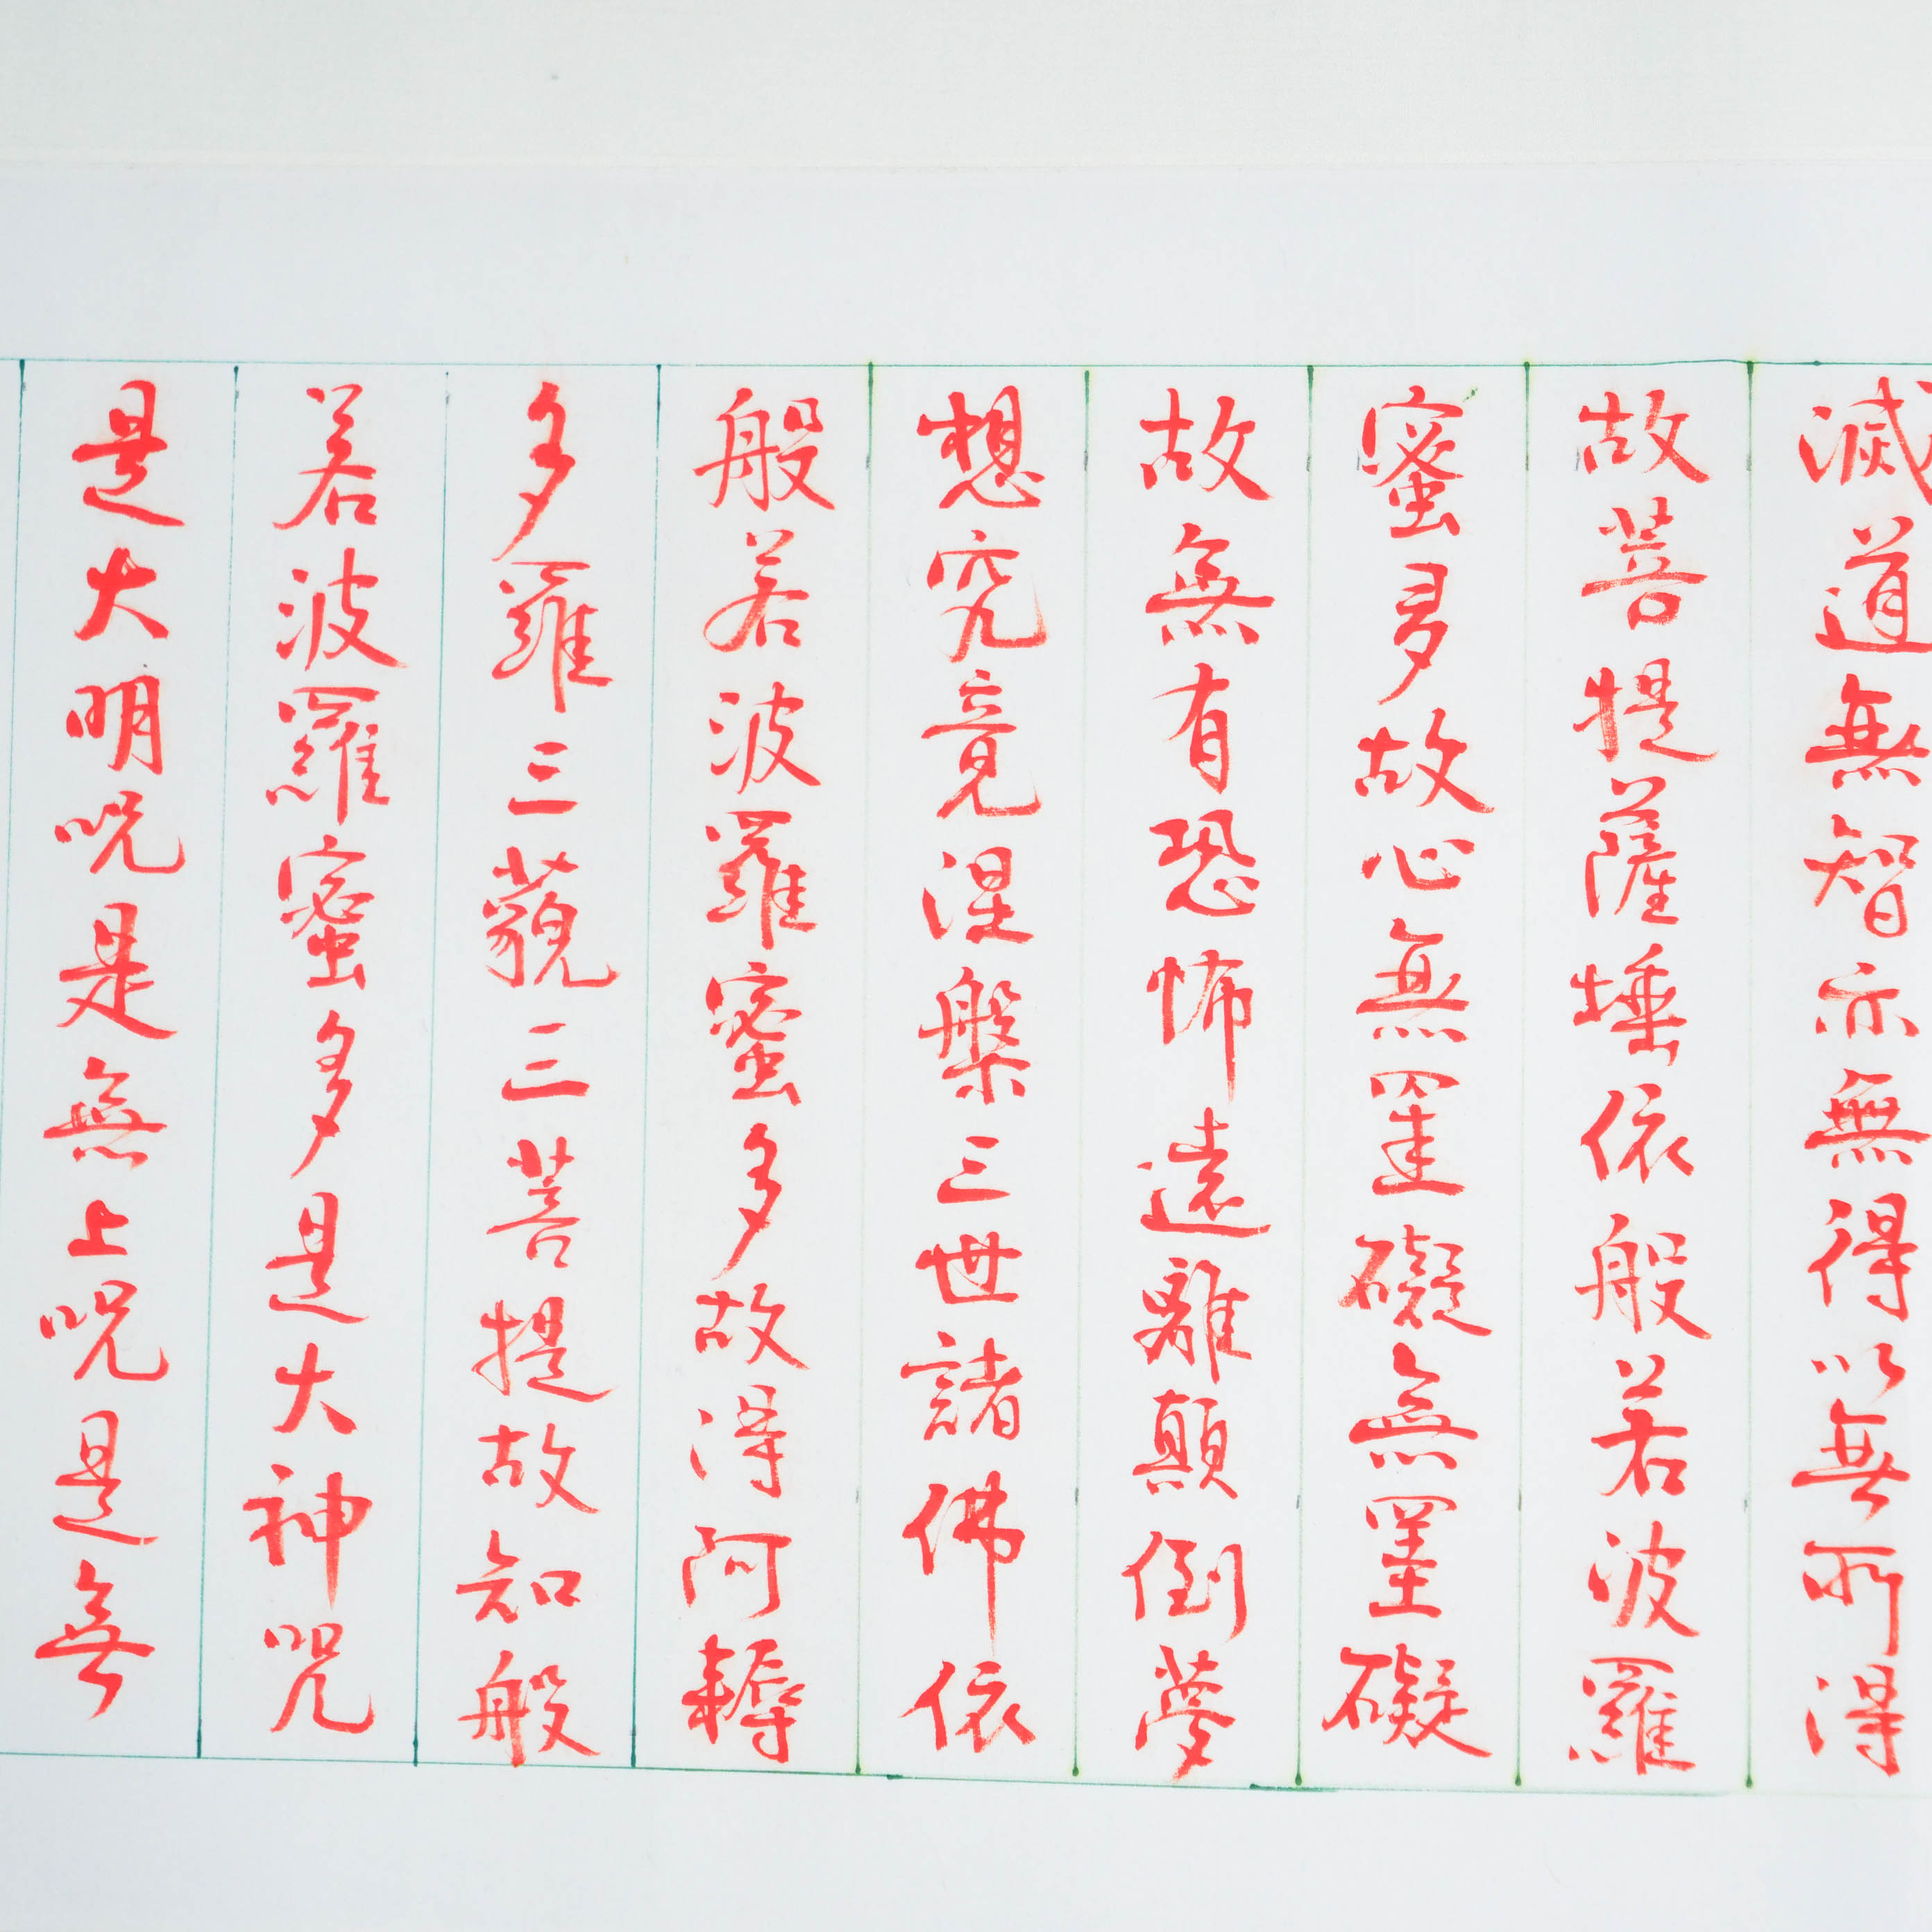 滅道無智亦無得以無所得
故菩提薩埵依般若波羅
蜜多故心無罣礙無罣礙
故無有恐怖遠離顛倒夢
想究竟涅槃三世諸佛依
般若波羅蜜多故得阿耨
多羅三藐三菩提故知般
若波羅蜜多是大神咒
是大明咒是無上咒是無